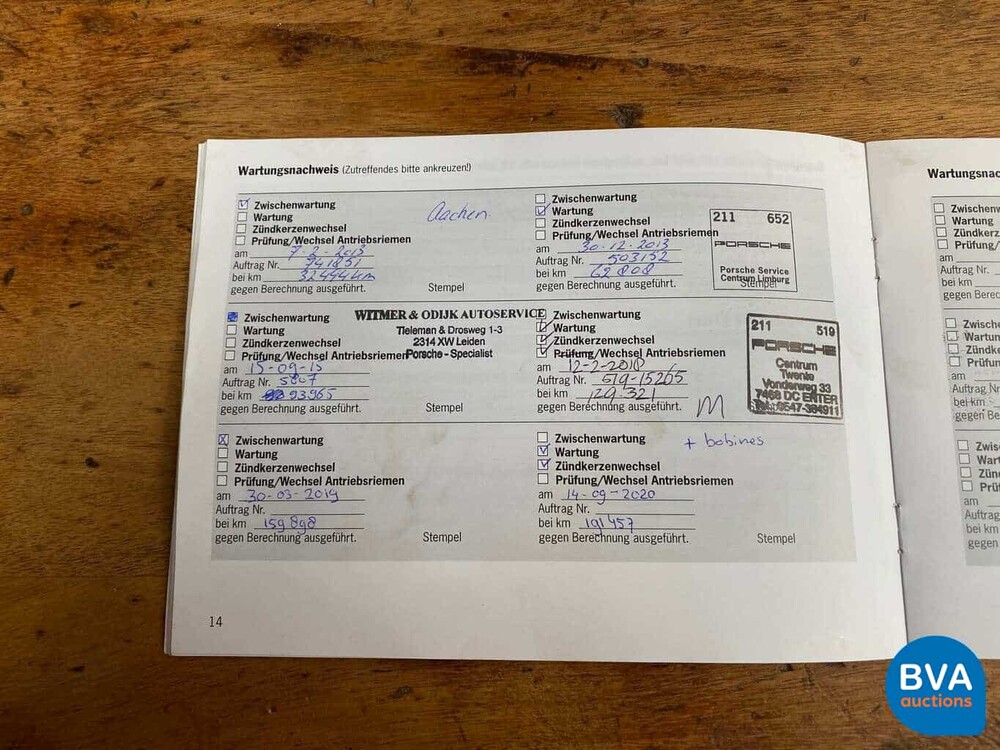 Wartungsnachweis (Zutreffendes bitte ankreuzen!)
Zwischenwartung
Wartung
Zündkerzenwechsel
Prüfung/Wechsel Antriebsriemen
Aachen
am 7-2-2013
Auftrag Nr. 741851
bei km 32444 km
gegen Berechnung ausgeführt.
Stempel
Zwischenwartung
Wartung
Zündkerzenwechsel
Prüfung/Wechsel Antriebsriemen
am 30-12-2013
Auftrag Nr. 503152
bei km 62808
gegen Berechnung ausgeführt.
Stempel
211 652
PORSCHE
Porsche Service
Centrum Limburg
Zwischenwartung
Wartung
Zündkerzenwechsel
Prüfung/Wechsel Antriebsriemen
am 15-09-15
Auftrag Nr. 5807
bei km 93965
gegen Berechnung ausgeführt.
Stempel
WITMER & ODIJK AUTOSERVICE
Tieleman & Drosweg 1-3
2314 XW Leiden
Porsche - Specialist
Zwischenwartung
Wartung
Zündkerzenwechsel
Prüfung/Wechsel Antriebsriemen
am 12-2-2018
Auftrag Nr. 519-15265
bei km 129.321
gegen Berechnung ausgeführt.
M
211 519
PORSCHE
Centrum
Twente
Vonderweg 33
7468 DC ENTER
Tel.: 0547-384911
Zwischenwartung
Wartung
Zündkerzenwechsel
Prüfung/Wechsel Antriebsriemen
am 30-03-2019
Auftrag Nr.
bei km 159898
gegen Berechnung ausgeführt.
Stempel
Zwischenwartung
Wartung
Zündkerzenwechsel
Prüfung/Wechsel Antriebsriemen
+ bobines
am 14-09-2020
Auftrag Nr.
bei km 191457
gegen Berechnung ausgeführt.
Stempel
14
Wartungsnac
Zwischenw
Wartung
Zündkerz
Prüfung/
am
Auftrag Nr.
bei km
gegen Berec
Zwischen
Wartung
Zündk
Prüfun
am
Auftrag
bei km
gegen Be
Zwisc
Wart
Zün
Prü
am
Auftrag
bei km
gegen
BVA
auctions